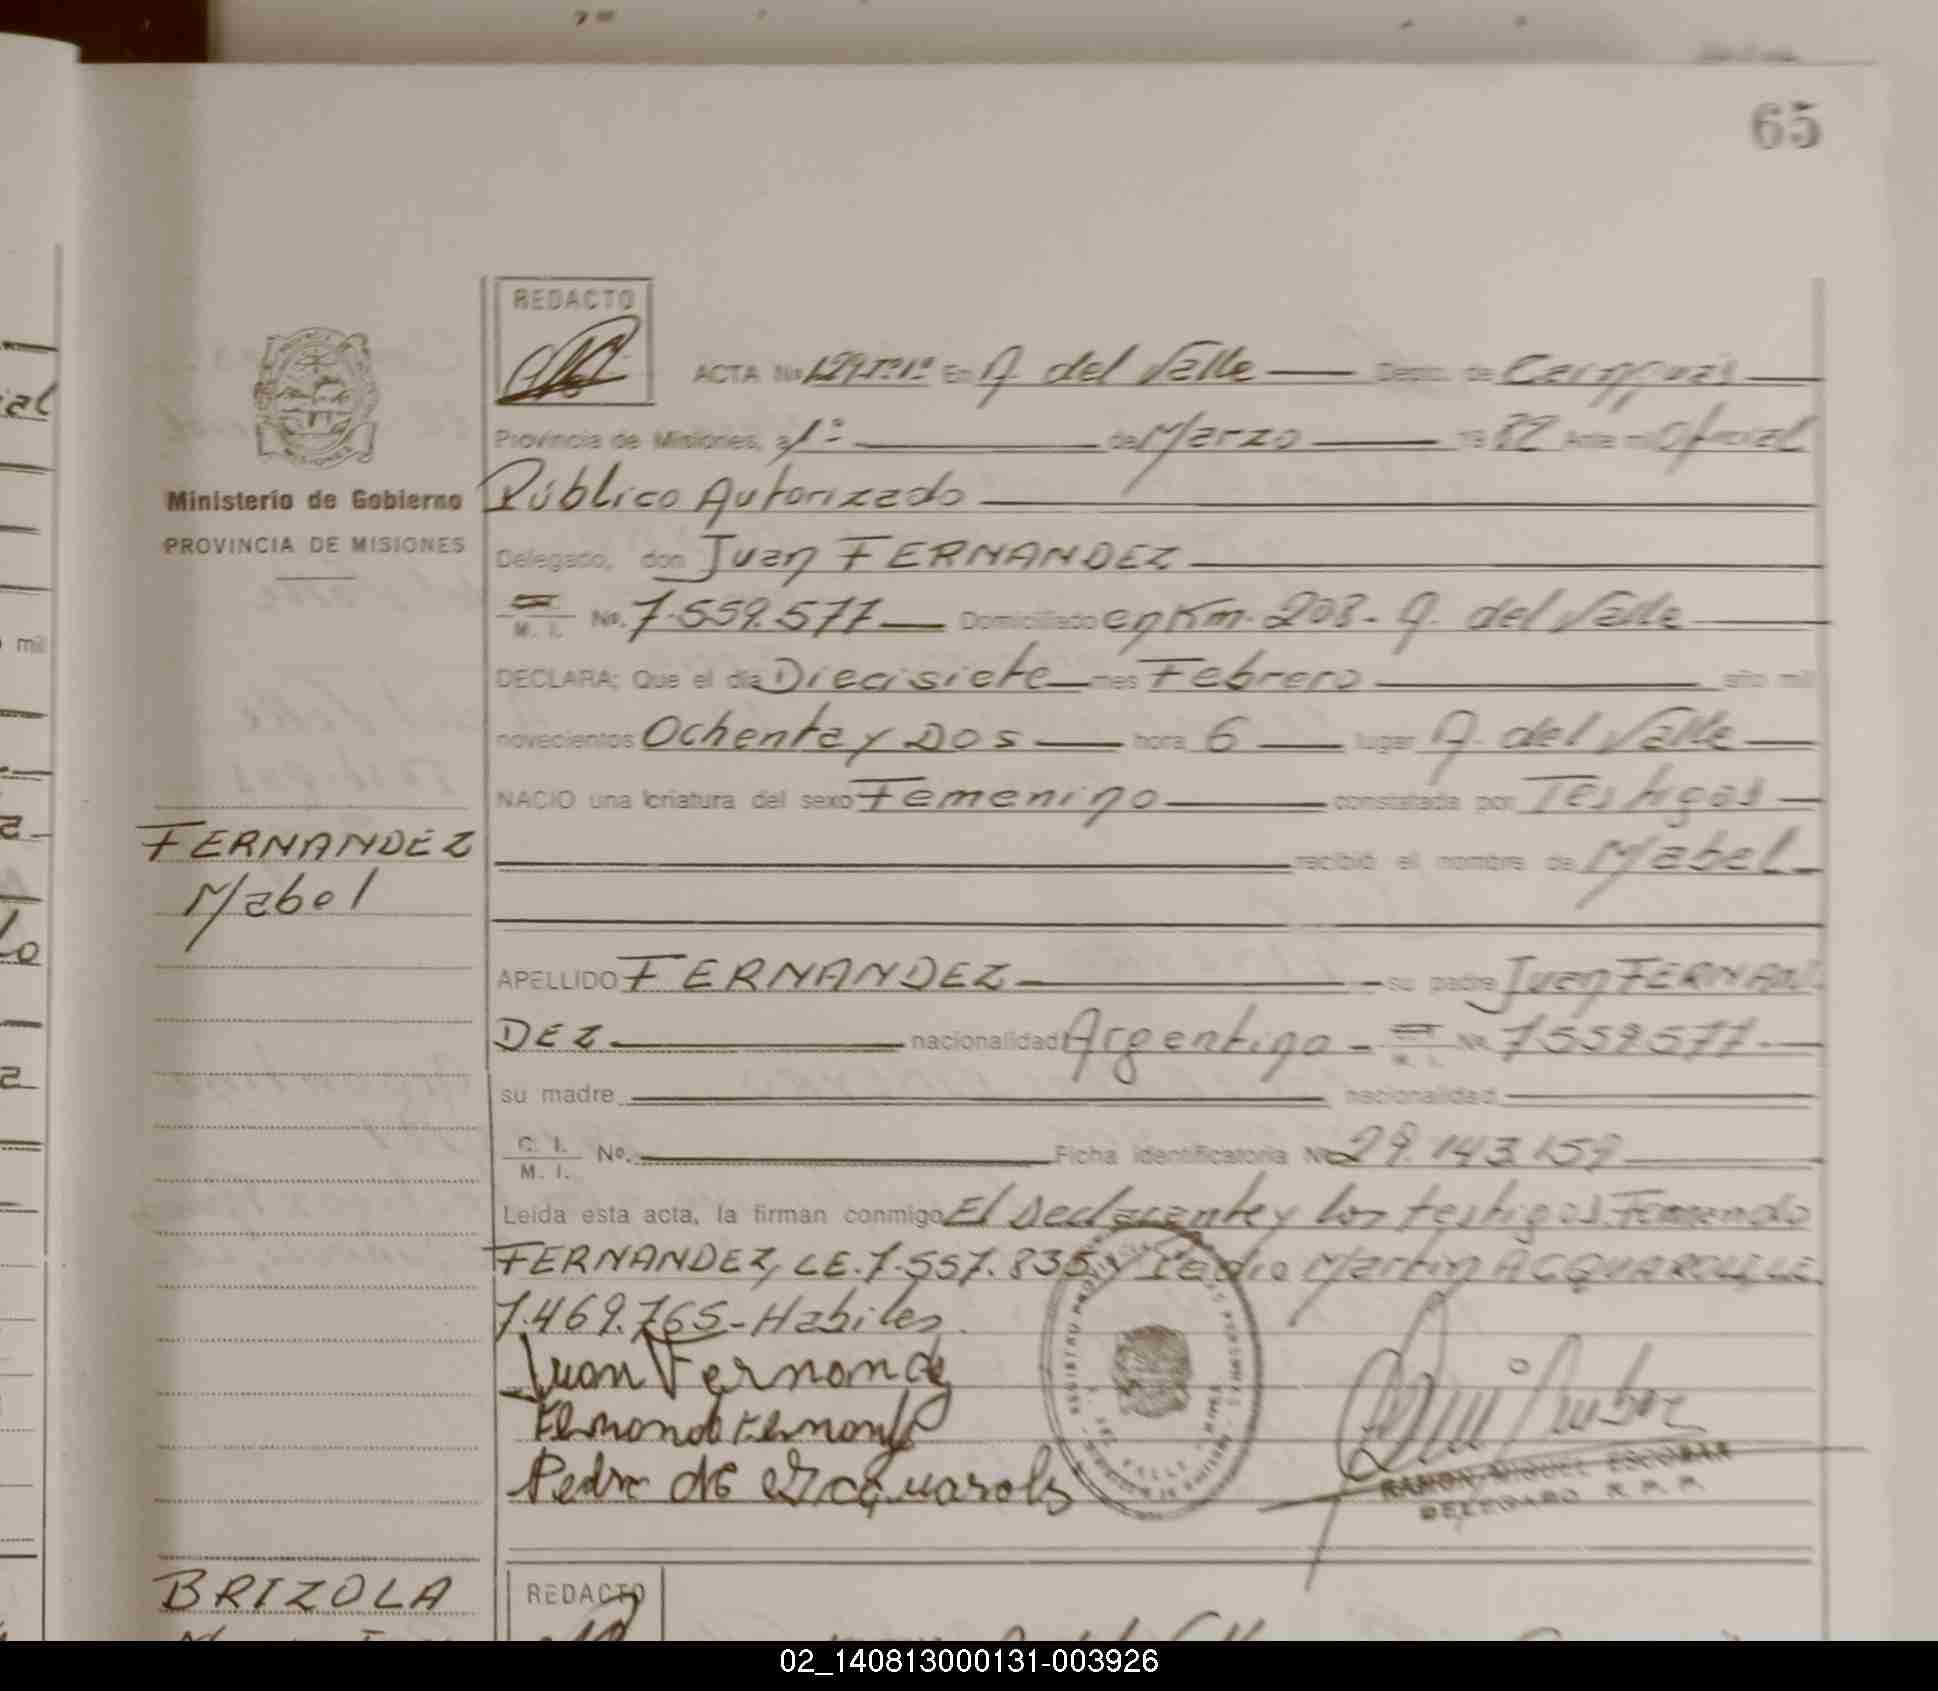 65
REDACTO
ACTA No 129. Tº1º En A. del Valle Depto. de Cainguás
Provincia de Misiones, a 1º de Marzo 1982 Ante mi Oficial
Público Autorizado
Ministerio de Gobierno
PROVINCIA DE MISIONES
Delegado, don Juan FERNANDEZ
M. I. No. 7.559.577 Domiciliado en Km. 203 - A. del Valle
DECLARA: Que el día Diecisiete mes Febrero año mil
novecientos Ochenta y Dos hora 6 lugar A. del Valle
NACIO una criatura del sexo Femenino constatada por Testigos
FERNANDEZ
Mabel
recibió el nombre de Mabel
APELLIDO FERNANDEZ su padre Juan FERNAN-
DEZ nacionalidad Argentina M. I. No. 7559.577
su madre nacionalidad
C. I.
M. I. No. Ficha Identificatoria No 29.143.159
Leída esta acta, la firman conmigo El Declarante y los testigos Fernando
FERNANDEZ, LE. 7.557.835 y Pedro Martin ACQUAROLI, LE
7.469.765 - Habiles.
Juan Fernandez
Fernando Fernandez
Pedro de Acquarols
RAMON MIGUEL ESCOBAR
DELEGADO R. P. P.
BRIZOLA
REDACTO
02_140813000131-003926